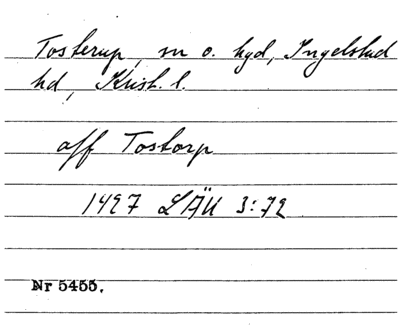 Tosterup, sn o. hgd, Ingelstad
hd, Krist. l.
aff Tostorp
1497 LÄU 3:72
Nr 5455.